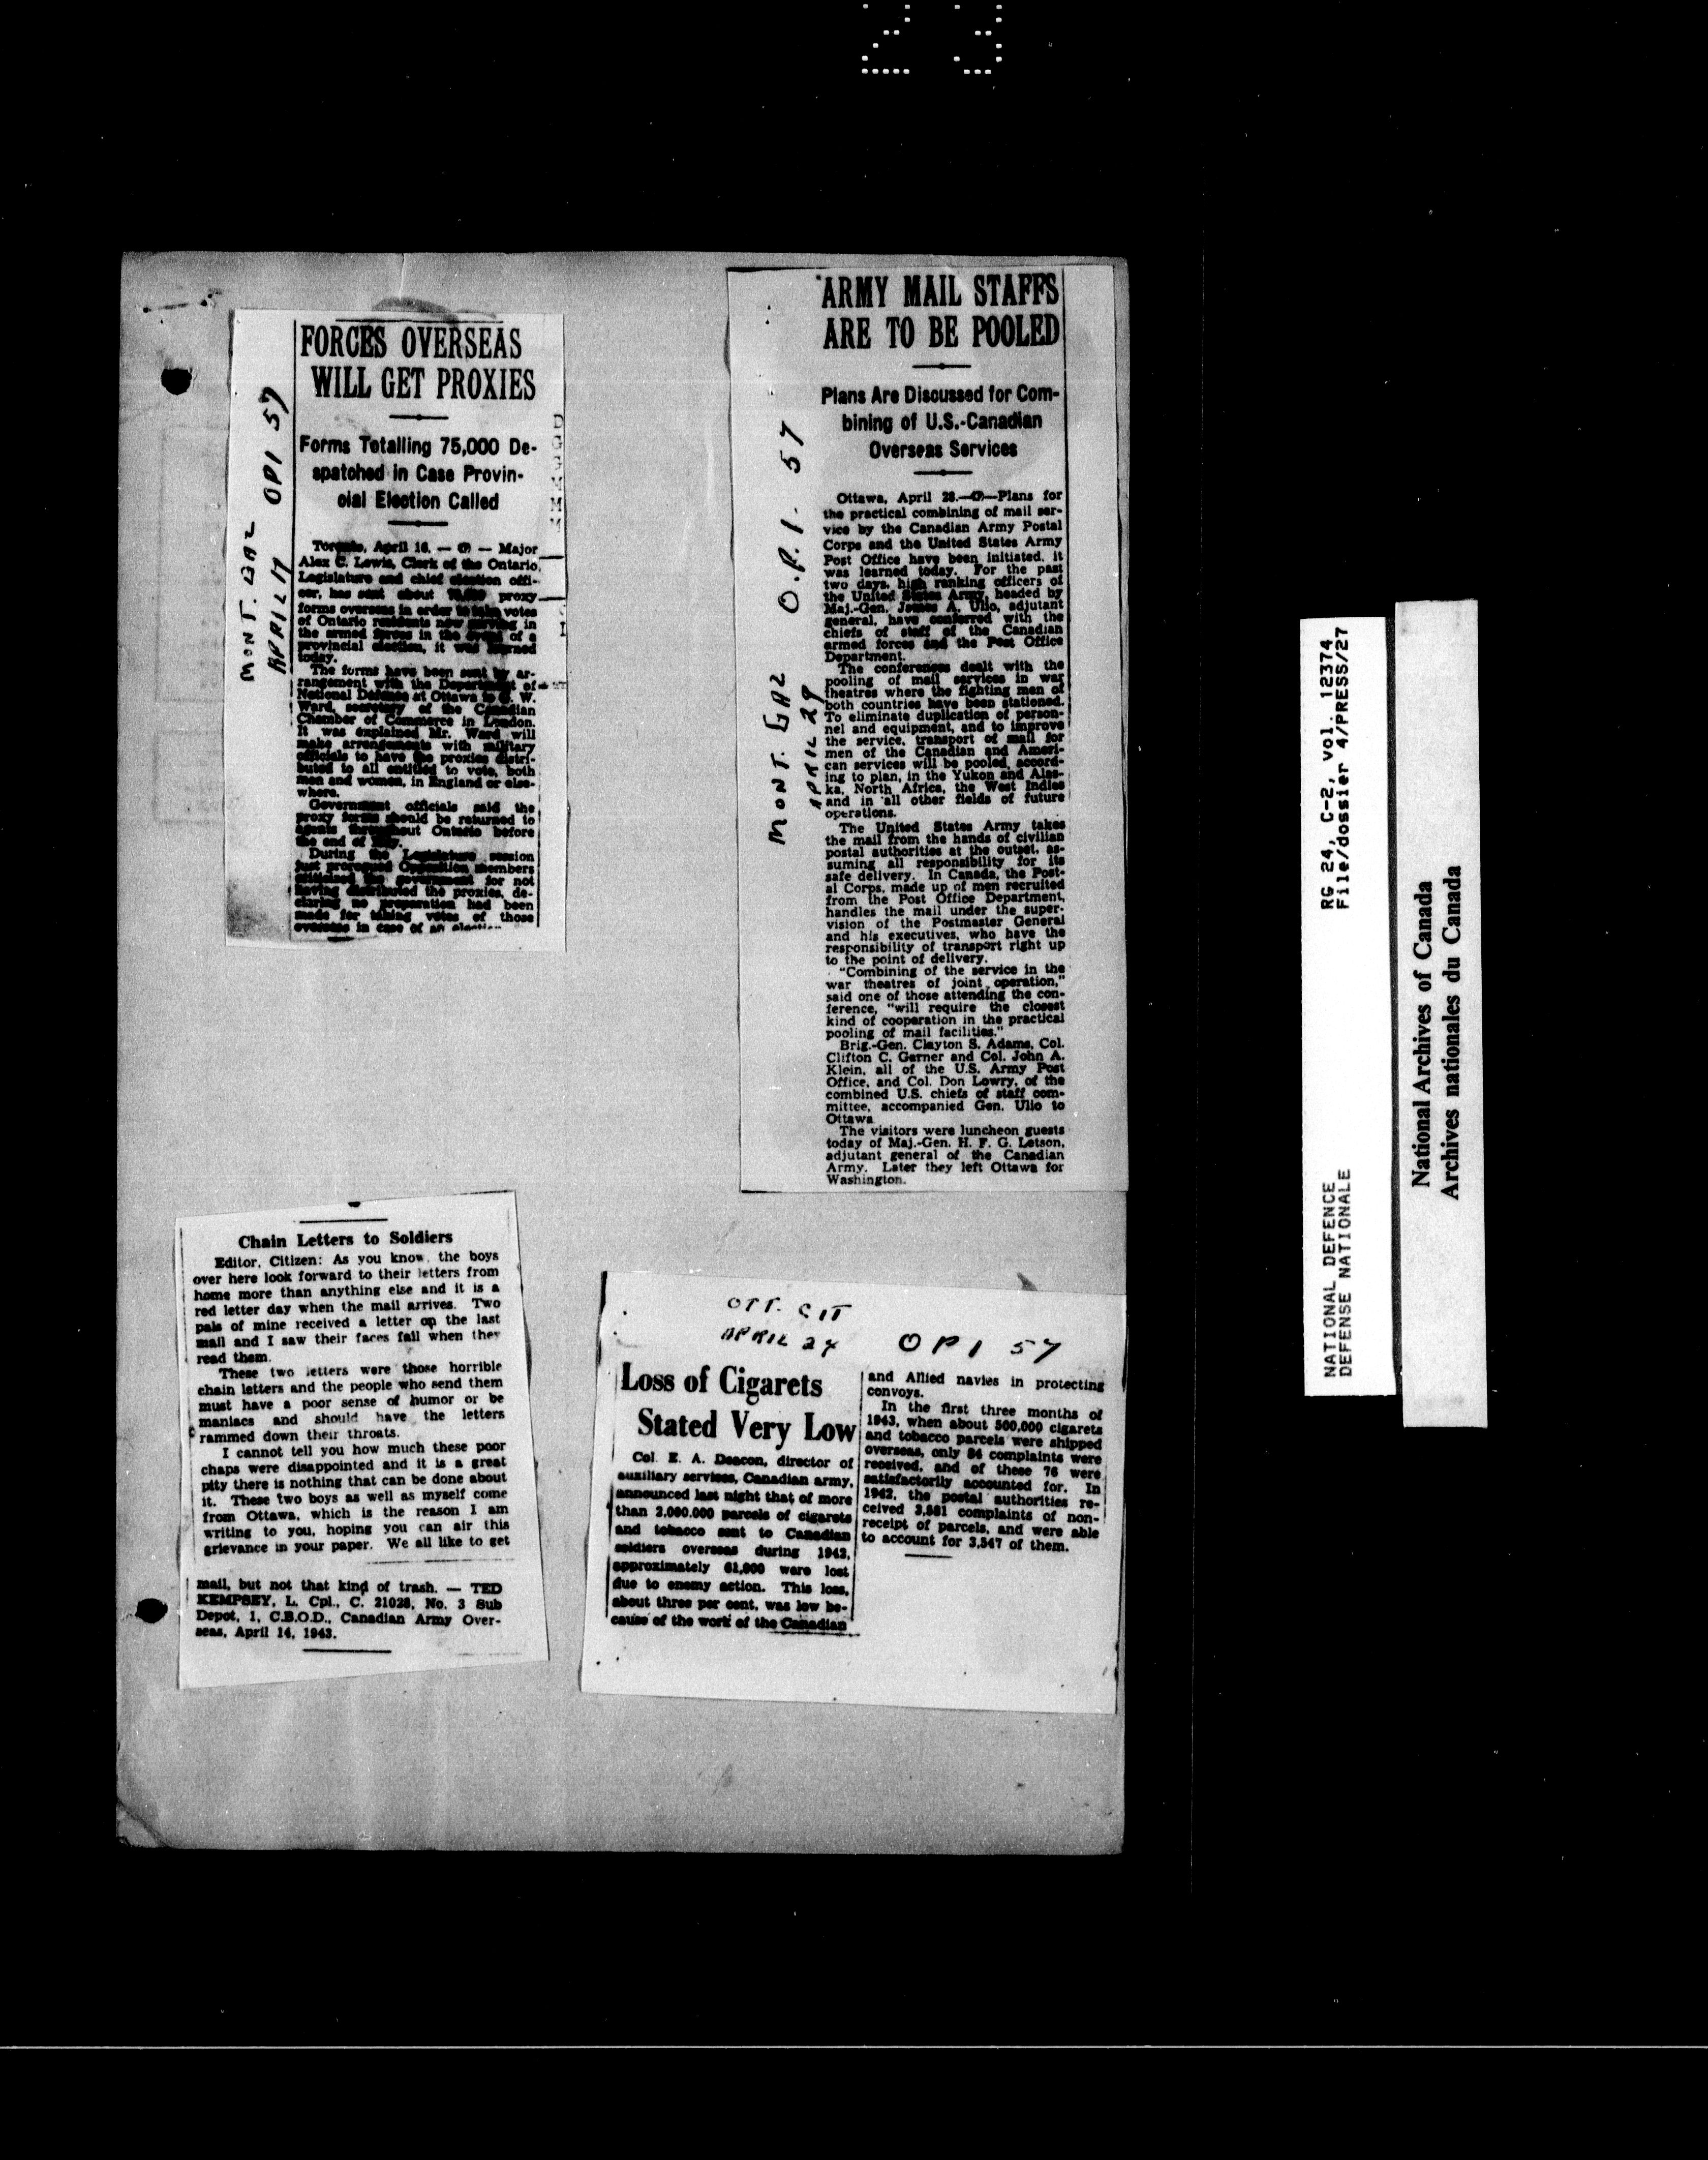 23
MONT. GAZ OPI 57
APRIL 17
FORCES OVERSEAS
WILL GET PROXIES
Forms Totalling 75,000 De-
spatched in Case Provin-
cial Election Called
Toronto, April 16. — (P) — Major
Alex C. Lewis, Clerk of the Ontario
Legislature and chief election offi-
cer, has sent about proxy
forms overseas in order to take votes
of Ontario residents now serving in
the armed forces in the event of a
provincial election, it was learned
today.
The forms have been sent by ar-
rangement with the Department of
National Defence at Ottawa to W.
Ward, secretary of the Canadian
Chamber of Commerce in London.
It was explained Mr. Ward will
make arrangements with military
officials to have the proxies distri-
buted to all entitled to vote, both
men and women, in England or else-
where.
Government officials said the
proxy forms should be returned to
agents throughout Ontario before
the end of
During the Legislature session
just prorogued Opposition members
criticized the government for not
having distributed the proxies, de-
claring no preparation had been
made for taking votes of those
overseas in case of an election.
MONT. GAZ O.P.I. 57
APRIL 29
ARMY MAIL STAFFS
ARE TO BE POOLED
Plans Are Discussed for Com-
bining of U.S.-Canadian
Overseas Services
Ottawa, April 28.—(P)—Plans for
the practical combining of mail ser-
vice by the Canadian Army Postal
Corps and the United States Army
Post Office have been initiated, it
was learned today. For the past
two days, high ranking officers of
the United States Army, headed by
Maj.-Gen. James A. Ulio, adjutant
general, have conferred with the
chiefs of staff of the Canadian
armed forces and the Post Office
Department.
The conferences dealt with the
pooling of mail services in war
theatres where the fighting men of
both countries have been stationed.
To eliminate duplication of person-
nel and equipment, and to improve
the service, transport of mail for
men of the Canadian and Ameri-
can services will be pooled, accord-
ing to plan, in the Yukon and Alas-
ka, North Africa, the West Indies
and in all other fields of future
operations.
The United States Army takes
the mail from the hands of civilian
postal authorities at the outset, as-
suming all responsibility for its
safe delivery. In Canada, the Post-
al Corps, made up of men recruited
from the Post Office Department,
handles the mail under the super-
vision of the Postmaster General
and his executives, who have the
responsibility of transport right up
to the point of delivery.
"Combining of the service in the
war theatres of joint operation,"
said one of those attending the con-
ference, "will require the closest
kind of cooperation in the practical
pooling of mail facilities."
Brig.-Gen. Clayton S. Adams, Col.
Clifton C. Garner and Col. John A.
Klein, all of the U.S. Army Post
Office, and Col. Don Lowry, of the
combined U.S. chiefs of staff com-
mittee, accompanied Gen. Ulio to
Ottawa
The visitors were luncheon guests
today of Maj.-Gen. H. F. G. Letson,
adjutant general of the Canadian
Army. Later they left Ottawa for
Washington.
Chain Letters to Soldiers
Editor, Citizen: As you know, the boys
over here look forward to their letters from
home more than anything else and it is a
red letter day when the mail arrives. Two
pals of mine received a letter on the last
mail and I saw their faces fall when they
read them.
These two letters were those horrible
chain letters and the people who send them
must have a poor sense of humor or be
maniacs and should have the letters
rammed down their throats.
I cannot tell you how much these poor
chaps were disappointed and it is a great
pity there is nothing that can be done about
it. These two boys as well as myself come
from Ottawa, which is the reason I am
writing to you, hoping you can air this
grievance in your paper. We all like to get
mail, but not that kind of trash. — TED
KEMPSEY, L. Cpl., C. 21028, No. 3 Sub
Depot, 1, C.B.O.D., Canadian Army Over-
seas, April 14, 1943.
OTT. CIT
APRIL 24 OPI 57
Loss of Cigarets
Stated Very Low
Col. E. A. Deacon, director of
auxiliary services, Canadian army,
announced last night that of more
than 2,000,000 parcels of cigarets
and tobacco sent to Canadian
soldiers overseas during 1942,
approximately 61,000 were lost
due to enemy action. This loss,
about three per cent, was low be-
cause of the work of the Canadian
and Allied navies in protecting
convoys.
In the first three months of
1943, when about 500,000 cigarets
and tobacco parcels were shipped
overseas, only 84 complaints were
received, and of these 76 were
satisfactorily accounted for. In
1942, the postal authorities re-
ceived 3,581 complaints of non-
receipt of parcels, and were able
to account for 3,547 of them.
NATIONAL DEFENCE RG 24, C-2, vol. 12374
DEFENSE NATIONALE File/dossier 4/PRESS/27
National Archives of Canada
Archives nationales du Canada